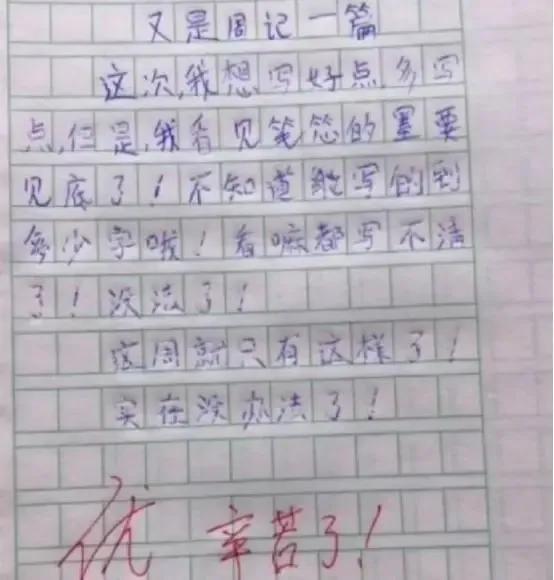 又是周记一篇
这次,我想写好点,多写
点,但是,我看见笔芯的墨要
见底了!不知道能写的到
多少字哦!看嘛都写不清
了!没法了!
这周就只有这样了!
实在没办法了!
优 辛苦了!